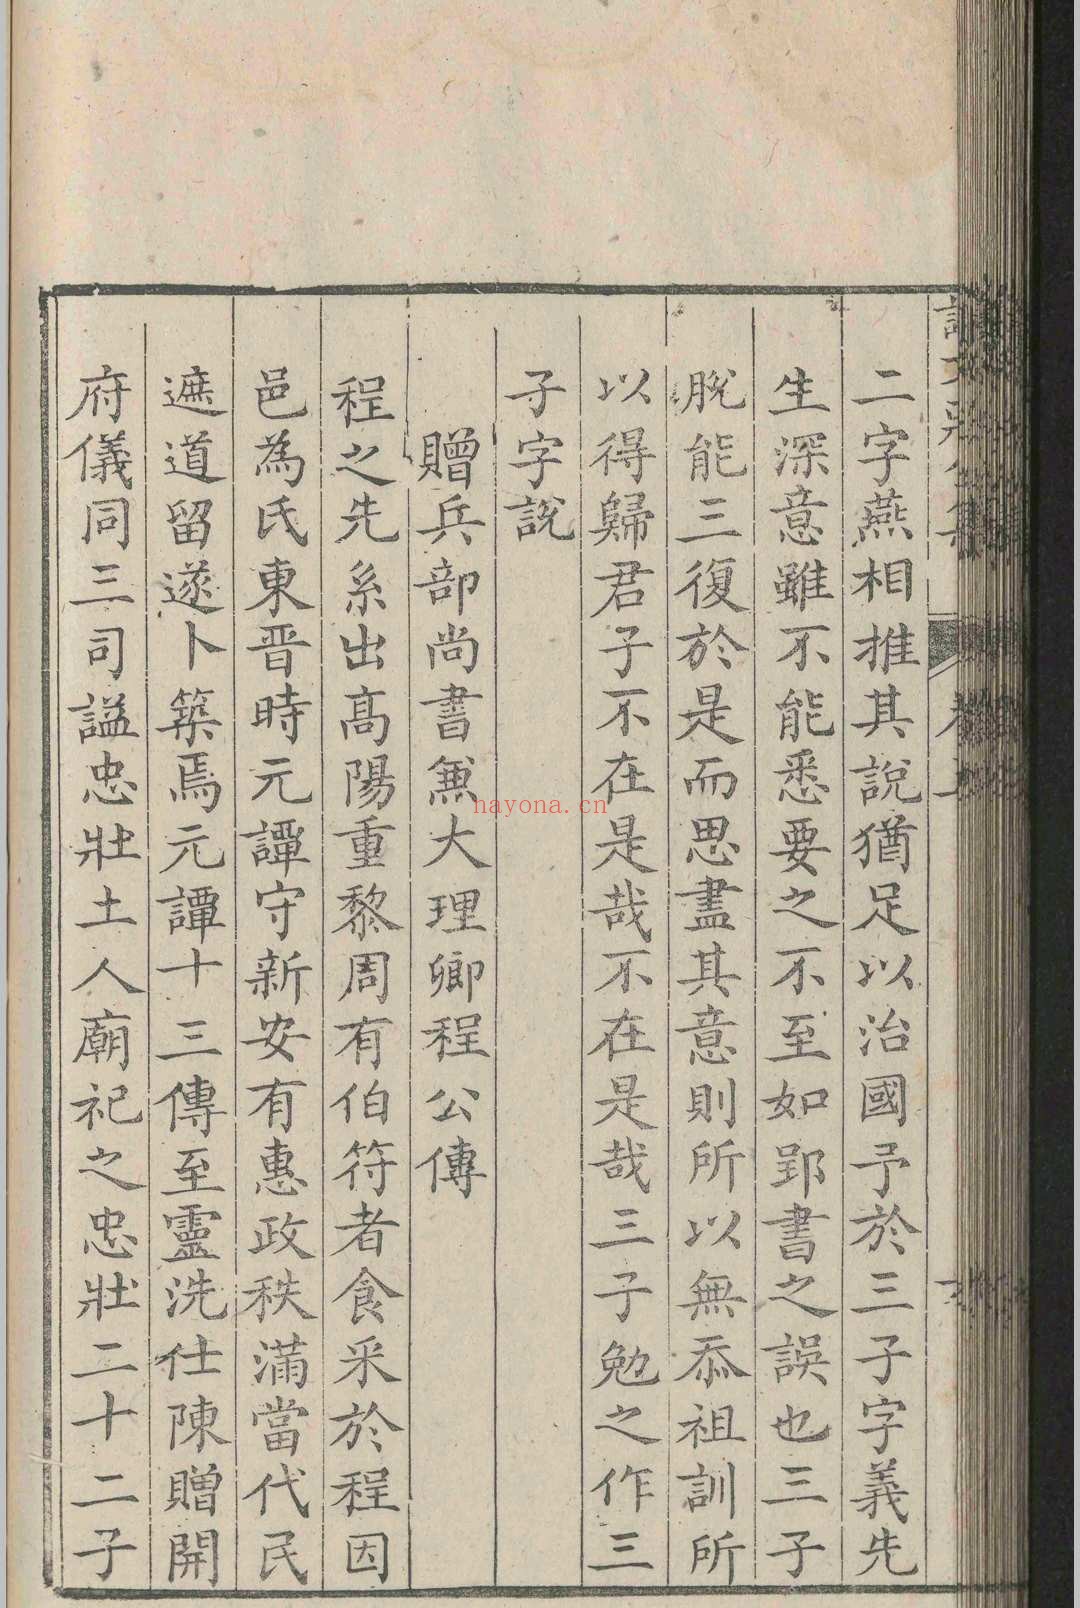 二字燕相推其說猶足以治國予於三子字義先
生深意雖不能悉要之不至如郢書之誤也三子
脫能三復於是而思盡其意則所以無忝祖訓所
以得歸君子不在是哉不在是哉三子勉之作三
子字說
贈兵部尚書兼大理卿程公傳
程之先系出高陽重黎周有伯符者食采於程因
邑為氏東晋時元譚守新安有惠政秩滿當代民
遮道留遂卜築焉元譚十三傳至靈洗仕陳贈開
府儀同三司謚忠壯土人廟祀之忠壯二十二子
hayona.cn